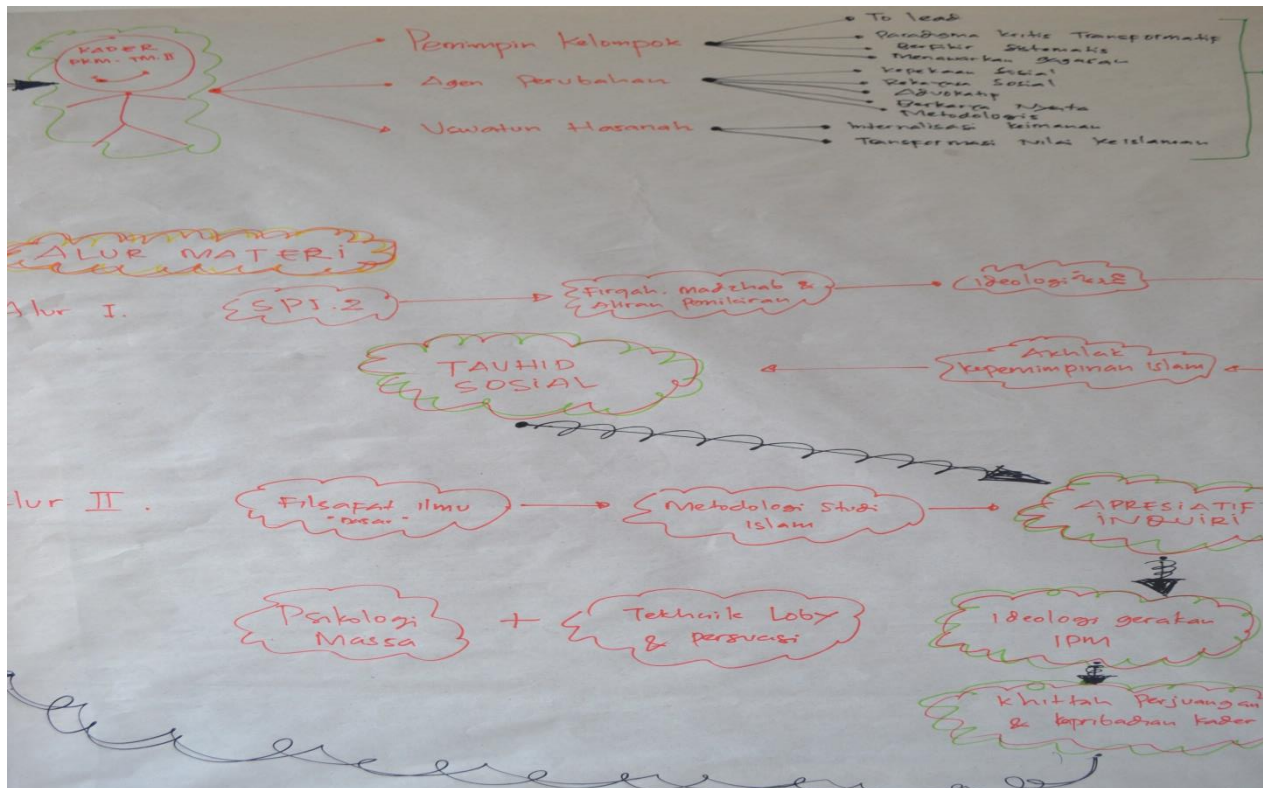 KADER
PKM. TM.II
Pemimpin Kelompok
To lead
Paradigma Kritis Transformatif
Berfikir Sistematis
Menawarkan gagasan
Agen Perubahan
Kepekaan Sosial
Rekayasa Sosial
Advokatif
Berkarya Nyata
Metodologis
Uswatun Hasanah
Internalisasi Keimanan
Transformasi Nilai Keislaman
ALUR MATERI
Alur I.
SPI.2
Firqah. madzhab &
Aliran Pemikiran
Ideologi
TAUHID
SOSIAL
Akhlak
Kepemimpinan Islam
lur II.
Filsafat Ilmu
- Dasar -
Metodologi Studi
Islam
APRESIATIF
INQUIRI
Psikologi
Massa
+
Tekhnik Loby
& persuasi
Ideologi gerakan
IPM
Khittah Perjuangan
& kepribadian Kader